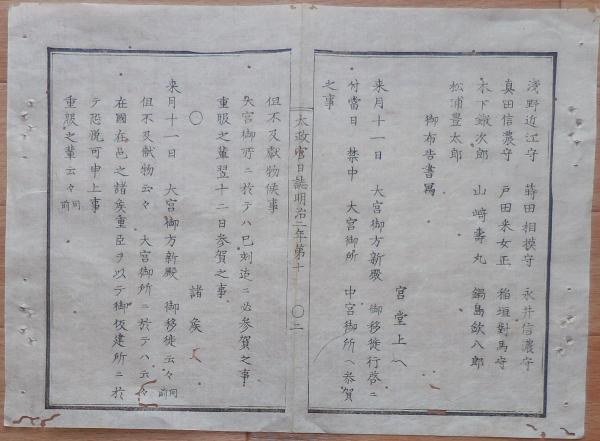 淺野近江守　蒔田相摸守　永井信濃守
真田信濃守　戸田采女正　稲垣對馬守
木下鍬次郎　山﨑壽丸　鍋島欽八郎
松浦豊太郎
御布告書寫
宮堂上ヘ
来月十一日　大宮御方新殿　御移徙行啓ニ
付當日　禁中　大宮御所　中宮御所ヘ参賀
之事
太政官日誌明治二年第十　〇二
但不及獻物候事
大宮御所ニ於テハ巳刻迄ニ必参賀之事
重服之輩翌十二日参賀之事
〇　諸矦ヘ
来月十一日　大宮御方新殿　御移徙云々同前
但不及献物云々　大宮御所ニ於テハ云々
在國在邑之諸矦重臣ヲ以テ御假建所ニ於
テ恐悦可申上事
重服之輩云々同前